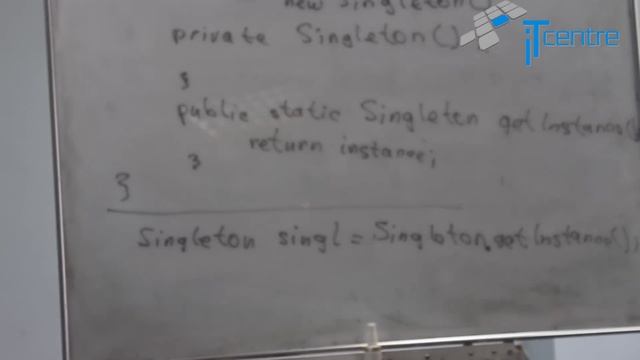 new Singleton()
private Singleton()
}
public static Singleton getInstance()
return instance;
}
}
Singleton singl = Singleton.getInstance();
iTcentre